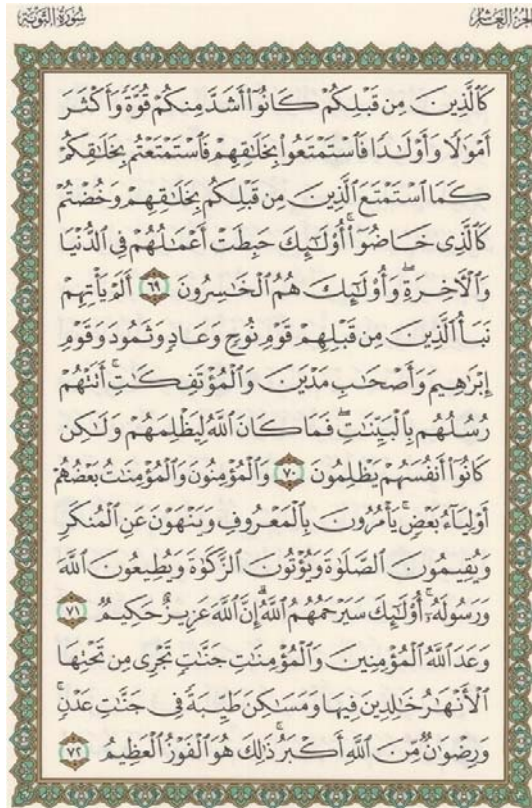 سُورَةُ التَّوْبَةِ
الجُزْءُ العَاشِرُ
كَٱلَّذِينَ مِن قَبْلِكُمْ كَانُوٓا۟ أَشَدَّ مِنكُمْ قُوَّةً وَأَكْثَرَ
أَمْوَٰلًا وَأَوْلَٰدًا فَٱسْتَمْتَعُوا۟ بِخَلَٰقِهِمْ فَٱسْتَمْتَعْتُم بِخَلَٰقِكُمْ
كَمَا ٱسْتَمْتَعَ ٱلَّذِينَ مِن قَبْلِكُم بِخَلَٰقِهِمْ وَخُضْتُمْ
كَٱلَّذِى خَاضُوٓا۟ ۚ أُو۟لَٰٓئِكَ حَبِطَتْ أَعْمَٰلُهُمْ فِى ٱلدُّنْيَا
وَٱلْءَاخِرَةِ ۖ وَأُو۟لَٰٓئِكَ هُمُ ٱلْخَٰسِرُونَ ٦٩ أَلَمْ يَأْتِهِمْ
نَبَأُ ٱلَّذِينَ مِن قَبْلِهِمْ قَوْمِ نُوحٍ وَعَادٍ وَثَمُودَ وَقَوْمِ
إِبْرَٰهِيمَ وَأَصْحَٰبِ مَدْيَنَ وَٱلْمُؤْتَفِكَٰتِ ۚ أَتَتْهُمْ
رُسُلُهُم بِٱلْبَيِّنَٰتِ ۖ فَمَا كَانَ ٱللَّهُ لِيَظْلِمَهُمْ وَلَٰكِن
كَانُوٓا۟ أَنفُسَهُمْ يَظْلِمُونَ ٧٠ وَٱلْمُؤْمِنُونَ وَٱلْمُؤْمِنَٰتُ بَعْضُهُمْ
أَوْلِيَآءُ بَعْضٍ ۚ يَأْمُرُونَ بِٱلْمَعْرُوفِ وَيَنْهَوْنَ عَنِ ٱلْمُنكَرِ
وَيُقِيمُونَ ٱلصَّلَوٰةَ وَيُؤْتُونَ ٱلزَّكَوٰةَ وَيُطِيعُونَ ٱللَّهَ
وَرَسُولَهُۥٓ ۚ أُو۟لَٰٓئِكَ سَيَرْحَمُهُمُ ٱللَّهُ ۗ إِنَّ ٱللَّهَ عَزِيزٌ حَكِيمٌ ٧١
وَعَدَ ٱللَّهُ ٱلْمُؤْمِنِينَ وَٱلْمُؤْمِنَٰتِ جَنَّٰتٍ تَجْرِى مِن تَحْتِهَا
ٱلْأَنْهَٰرُ خَٰلِدِينَ فِيهَا وَمَسَٰكِنَ طَيِّبَةً فِى جَنَّٰتِ عَدْنٍ ۚ
وَرِضْوَٰنٌ مِّنَ ٱللَّهِ أَكْبَرُ ۚ ذَٰلِكَ هُوَ ٱلْفَوْزُ ٱلْعَظِيمُ ٧٢